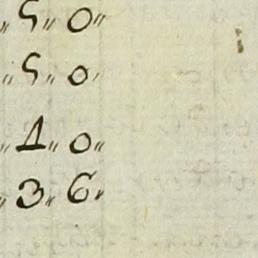 „ 5 „ 0 „
„ 5 „ 0 „
„ 1 „ 0 „
„ 3 „ 6 „